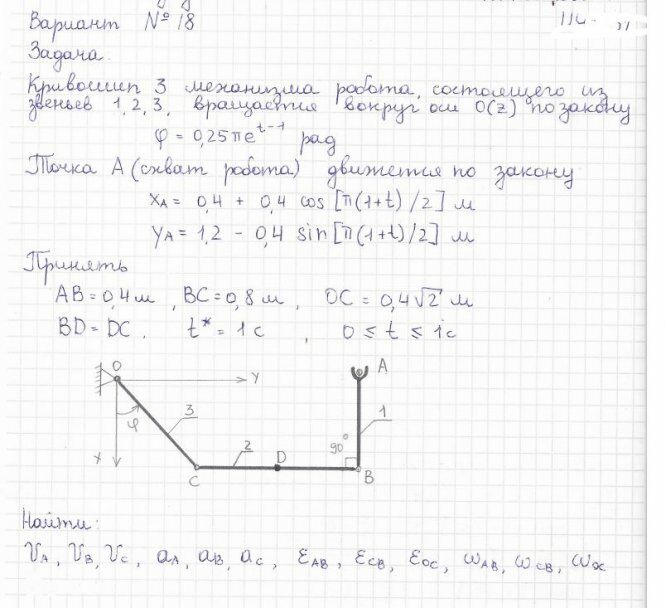 Вариант № 18
Задача.
Кривошип 3 механизма робота, состоящего из
звеньев 1,2,3, вращается вокруг оси O(z) по закону
φ = 0,25πe^{t-1} рад
Точка А (схват робота) движется по закону
x_A = 0,4 + 0,4 cos [π(1+t)/2] м
y_A = 1,2 - 0,4 sin [π(1+t)/2] м
Принять
AB = 0,4 м , BC = 0,8 м , OC = 0,4√2 м
BD = DC . t* = 1 с , 0 ≤ t ≤ 1с
O
A
Y
3
φ
1
X
2
D
90°
C
B
Найти:
V_A, V_B, V_C, a_A, a_B, a_C, ε_AB, ε_CB, ε_OC, ω_AB, ω_CB, ω_OC